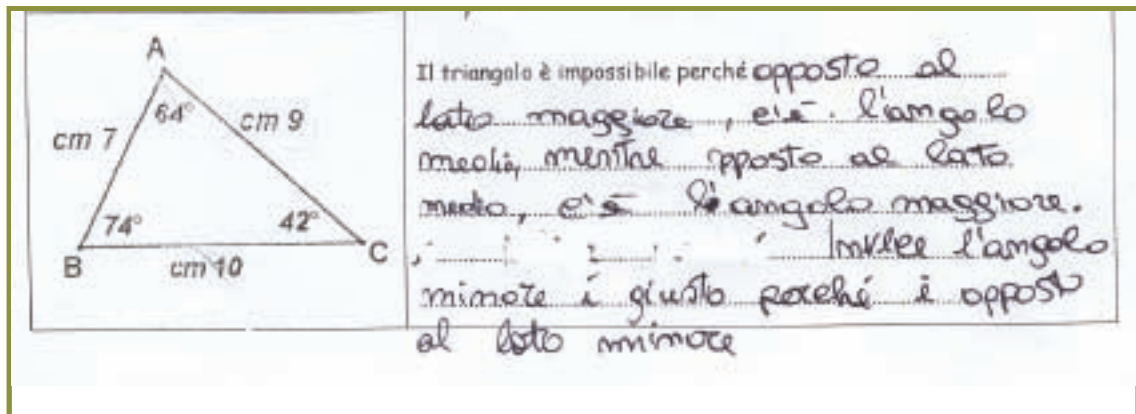 A
64°
cm 7
cm 9
74°
42°
B
cm 10
C
Il triangolo è impossibile perché opposto al
lato maggiore, c'è l'angolo
medio, mentre opposto al lato
medio, c'è l'angolo maggiore.
Invece l'angolo
minore è giusto perché è opposto
al lato minore